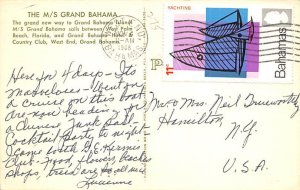 THE M/S GRAND BAHAMA
The grand new way to Grand Bahama Island!
M/S Grand Bahama sails between West Palm
Beach, Florida, and Grand Bahama Hotel &
Country Club, West End, Grand Bahama.
YACHTING
11c
Bahamas
Here for 4 days - Its
Marvelous - Went on
a cruise on this boat
are now heading for
a Chinese Junk Sail
Cocktail Party to night
I came with G.E.
Club - Food, flowers, beaches
shops, trees are all nice
Mr. & Mrs. Neil Trueworthy
Hamilton,
N.Y.
U.S.A.